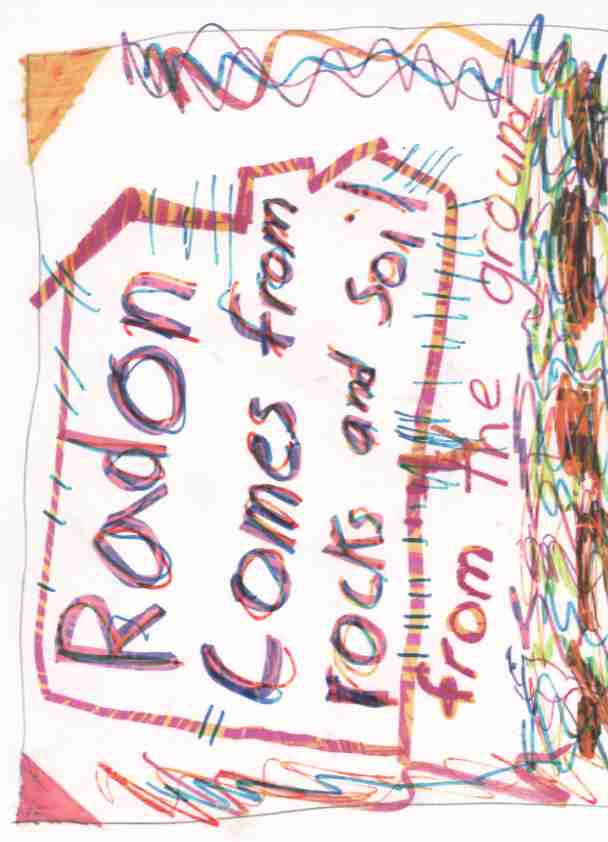 Radon
Comes from
rocks and Soil
from the ground